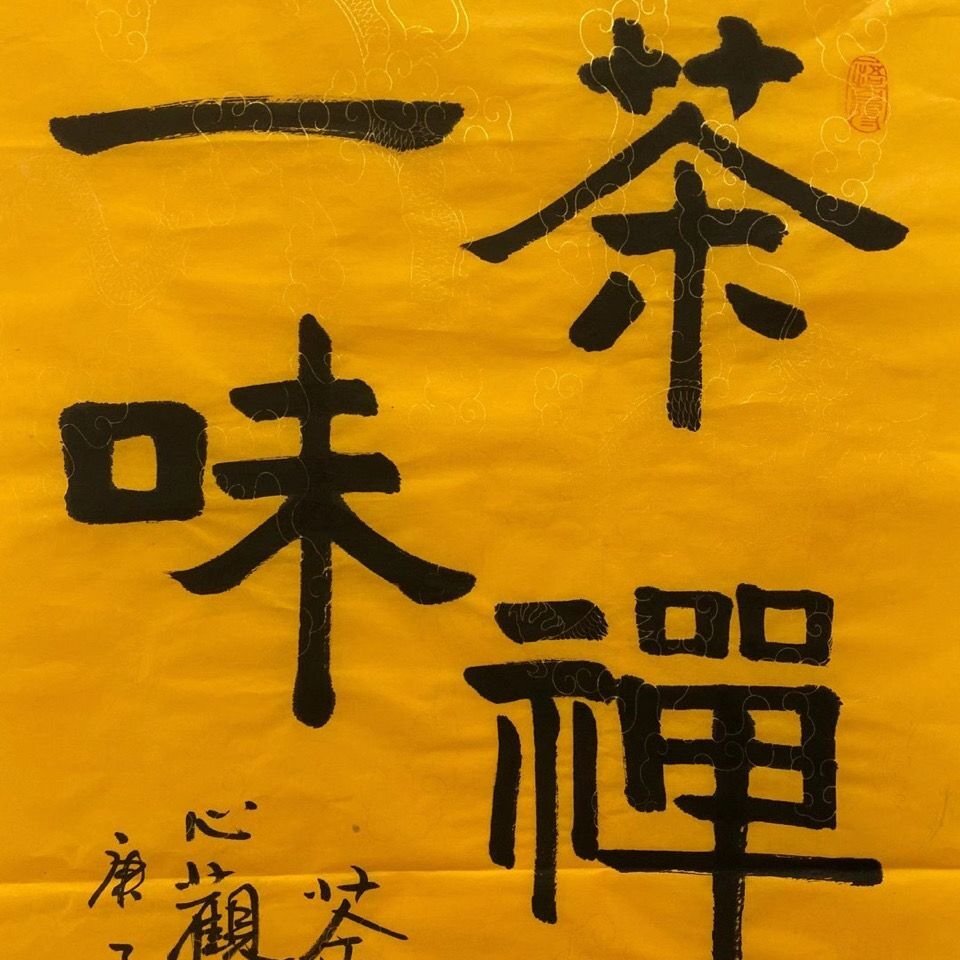 茶禪
一味
茶
心觀
庚